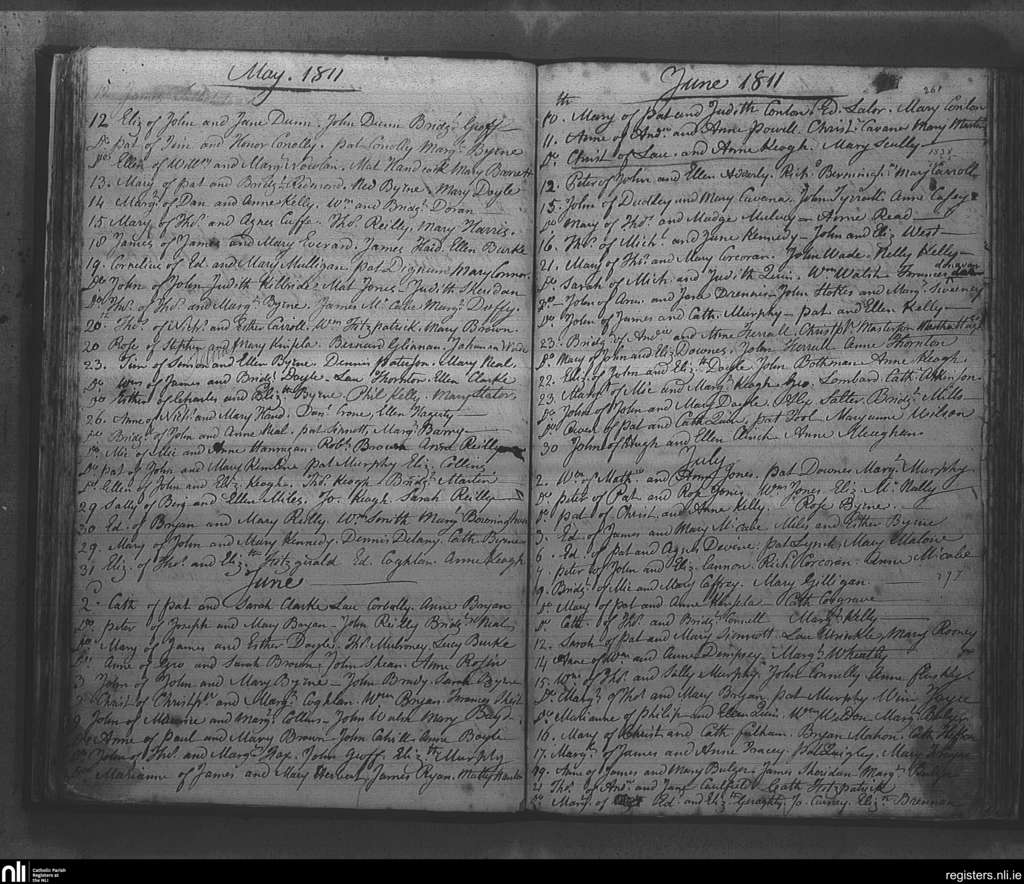 May. 1811
12 Eliz. of John and Jane Dunn. John Dunn Bridgt. Geoff
Do. Pat of Tim and Honor Conolly. Pat Conolly Margt. Byrne
Do. Ellen of Willm. and Margt. Nowlan. Mat Handcock Mary Barrett
13. Mary of Pat and Bridgt. Redmond. Ned Byrne Mary Doyle
14 Margt. of Dan and Anne Kelly. Wm. and Bridgt. Doran
15 Mary of Thos. and Agnes Cuffe. Thos. Reilly. Mary Harris.
18 James of James and Mary Everard. James Haid. Ellen Burke
19. Cornelius of Ed. and Mary Mulligan. Pat Dignum Mary Connor
Do. John of John Judith Kilbride. Mat Jones. Judith Sheridan
Do. Thos. of Thos. and Margt. Byrne. James McCabe Margt. Duffy.
20. Thos. of Nichs. and Esther Carroll. Wm. Fitzpatrick. Mary Brown.
20 Rose of Stephen and Mary Kinsela. Bernard Glannan.
23. Tim of Simon and Ellen Byrne Dennis Waterson. Mary Neal
Do. Wm. of James and Bridgt. Doyle. Lau Thornton. Ellen Clarke
Do. Esther of Charles and Elizth. Byrne Phil Kelly. Mary Slator
26. Anne of Nichs. and Mary Hand. Danl. Crone, Ellen Hagerty
Do. Bridgt. of John and Anne Neal. Pat Sinnott, Margt. Barry
Do. Mic of Mic and Anne Hannigan. Robt. Brown Anne Reilly
Do. Pat of John and Mary Pat Murphy Eliz. Collins
Do. Ellen of John and Eliz. Keogh. Thos. Keogh Bridgt. Martin
29 Sally of Big and Ellen Miles. Jo. Keogh Sarah Reilly
30 Ed. of Bryan and Mary Reilly. Wm. Smith Margt.
29. Mary of John and Mary Kennedy. Dennis Delany. Cath. Byrne
31 Eliz. of Thos. and Elizth. Fitzgerald Ed. Coghlan. Anne Keogh
June
2. Cath. of Pat and Sarah Clarke Lau Corbolly. Anne Bryan
Do. Peter of Joseph and Mary Bryan. John Reilly Bridgt. Neal
Do. Mary of James and Esther Doyle. Thos. Mulroney Lucy Burke
Do. Anne of Geo and Sarah Brown. John Shean. Anne
3 John of John and Mary Byrne. John Brady. Sarah Byrne
Christ. of Christphr. and Margt. Coghlan. Wm. Bryan. Frances
9 John of Maurice and Margt. Collins. John Walsh Mary
Anne of Paul and Mary Brown. John Cahill. Anne Boyle
Do. John of Thos. and Margt. Fax. John Geoff. Elizth. Murphy
Marianne of James and Mary Herbert. James Ryan.
June 1811
261
10th. Mary of Pat and Judith Conlon. Ed. Lalor. Mary Conlon
11. Anne of Andw. and Anne Powell. Christ. Cavana Mary
Do. Christ. of Lau. and Anne Keogh. Mary Scully
12. Peter of John and Ellen Adderly. Richd. Bermingm. Mary Carroll
15. John of Dudley and Mary Cavena. John Tyrrott. Anne Casey
Do. Mary of Thos. and Madge Mulvey. Anne Read
16. Thos. of Michl. and June Kennedy. John and Eliz. West
21. Mary of Thos. and Mary Corcoran. John Wade Nelly Kelly
Do. Sarah of Mich. and Judith Quin. Wm. Walsh
Do. John of Ann. and Jane Drennin. John Stokes and Margt. Sweeney
Do. John of James and Cath. Murphy. Pat and Ellen Kelly
23. Bridgt. of Andw. and Anne Ferrall Christphr. Masterson
Do. Mary John and Eliz. Downes John Ferrall Anne Thornton
22. Eliz. of John and Elizth. Doyle John Anne Keogh
23. of Mic and Mary Keogh Geo. Lombard Cath. Atkinson
Do. John of John and Mary Doyle. Salter. Bridgt. Mills
Do. Owen of Pat and Cath. Quin. Pat Tool Maryanne Wilson
30 John of Hugh and Ellen Clinch Anne Meighan
July
2. Wm. of Matth. and Jones. Pat Downes Margt. Murphy
Do. Peter of Pat and Rose Jones. Wm. Jones Eliz. McNally
Do. Pat of Christ. and Anne Kelly. Rose Byrne
3. Ed. of James and Mary McCabe Miles and Esther Byrne
6. Ed. of Pat and Agnes Devine. Pat Lynch. Mary Malone
Peter of John and Eliz. Cannon. Rich. Corcoran. Anne McCabe
9. Bridgt. of Mic and Mary Caffrey. Mary Gilligan 297
Do. Mary of Pat and Anne Kinsela. Cath Cosgrave
Do. Cath. of Thos. and Bridgt. Connell Margt. Kelly
12. Sarah of Pat and Mary Sinnott. Lau Mary Rooney
14 Jane of Wm. and Anne Dempsey. Margt. Wheatly
15. Wm. of Thos. and Sally Murphy. John Connelly Anne
Do. Margt. of Thos. and Mary Bolgan. Pat Murphy Win Joyce
Do. Marianne of Philip and Ellen Quin. Wm. Weldon Margt. Bulger
16. Mary of Christ and Cath. Fulham. Bryan Mahon. Cath. Heffron
17. Margt. of James and Anne Tracey. Pat Quigley. Mary
19. Anne of James and Mary Bulger. James Sheridan Margt. Bulger
21 Thos. of Andw. and Jane Caulfield. Cath. Fitzpatrick
Do. Mary. of Ed. and Elizth. Geraghty. Jo. Curray. Elizth. Brennan
nli Catholic Parish Registers at the NLI
registers.nli.ie